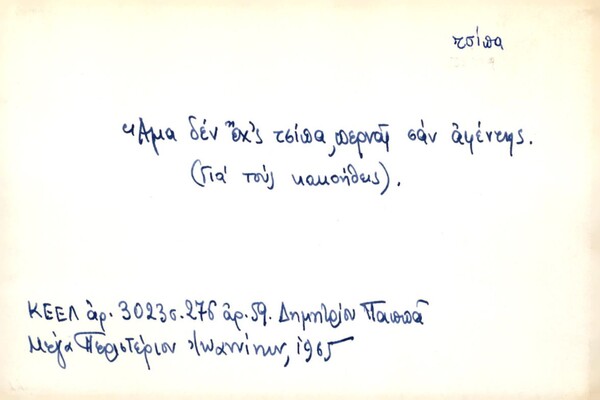 τσίπα
Ἅμα δέν ἔχ'ς τσίπα, περνᾷς σάν ἀφέντης.
(Γιά τούς κακοήθεις).
ΚΕΕΛ ἀρ. 3023 σ. 276 ἀρ. 59. Δημητρίου Παππᾶ
Μέγα Περιστέριον Ἰωαννίνων, 1965